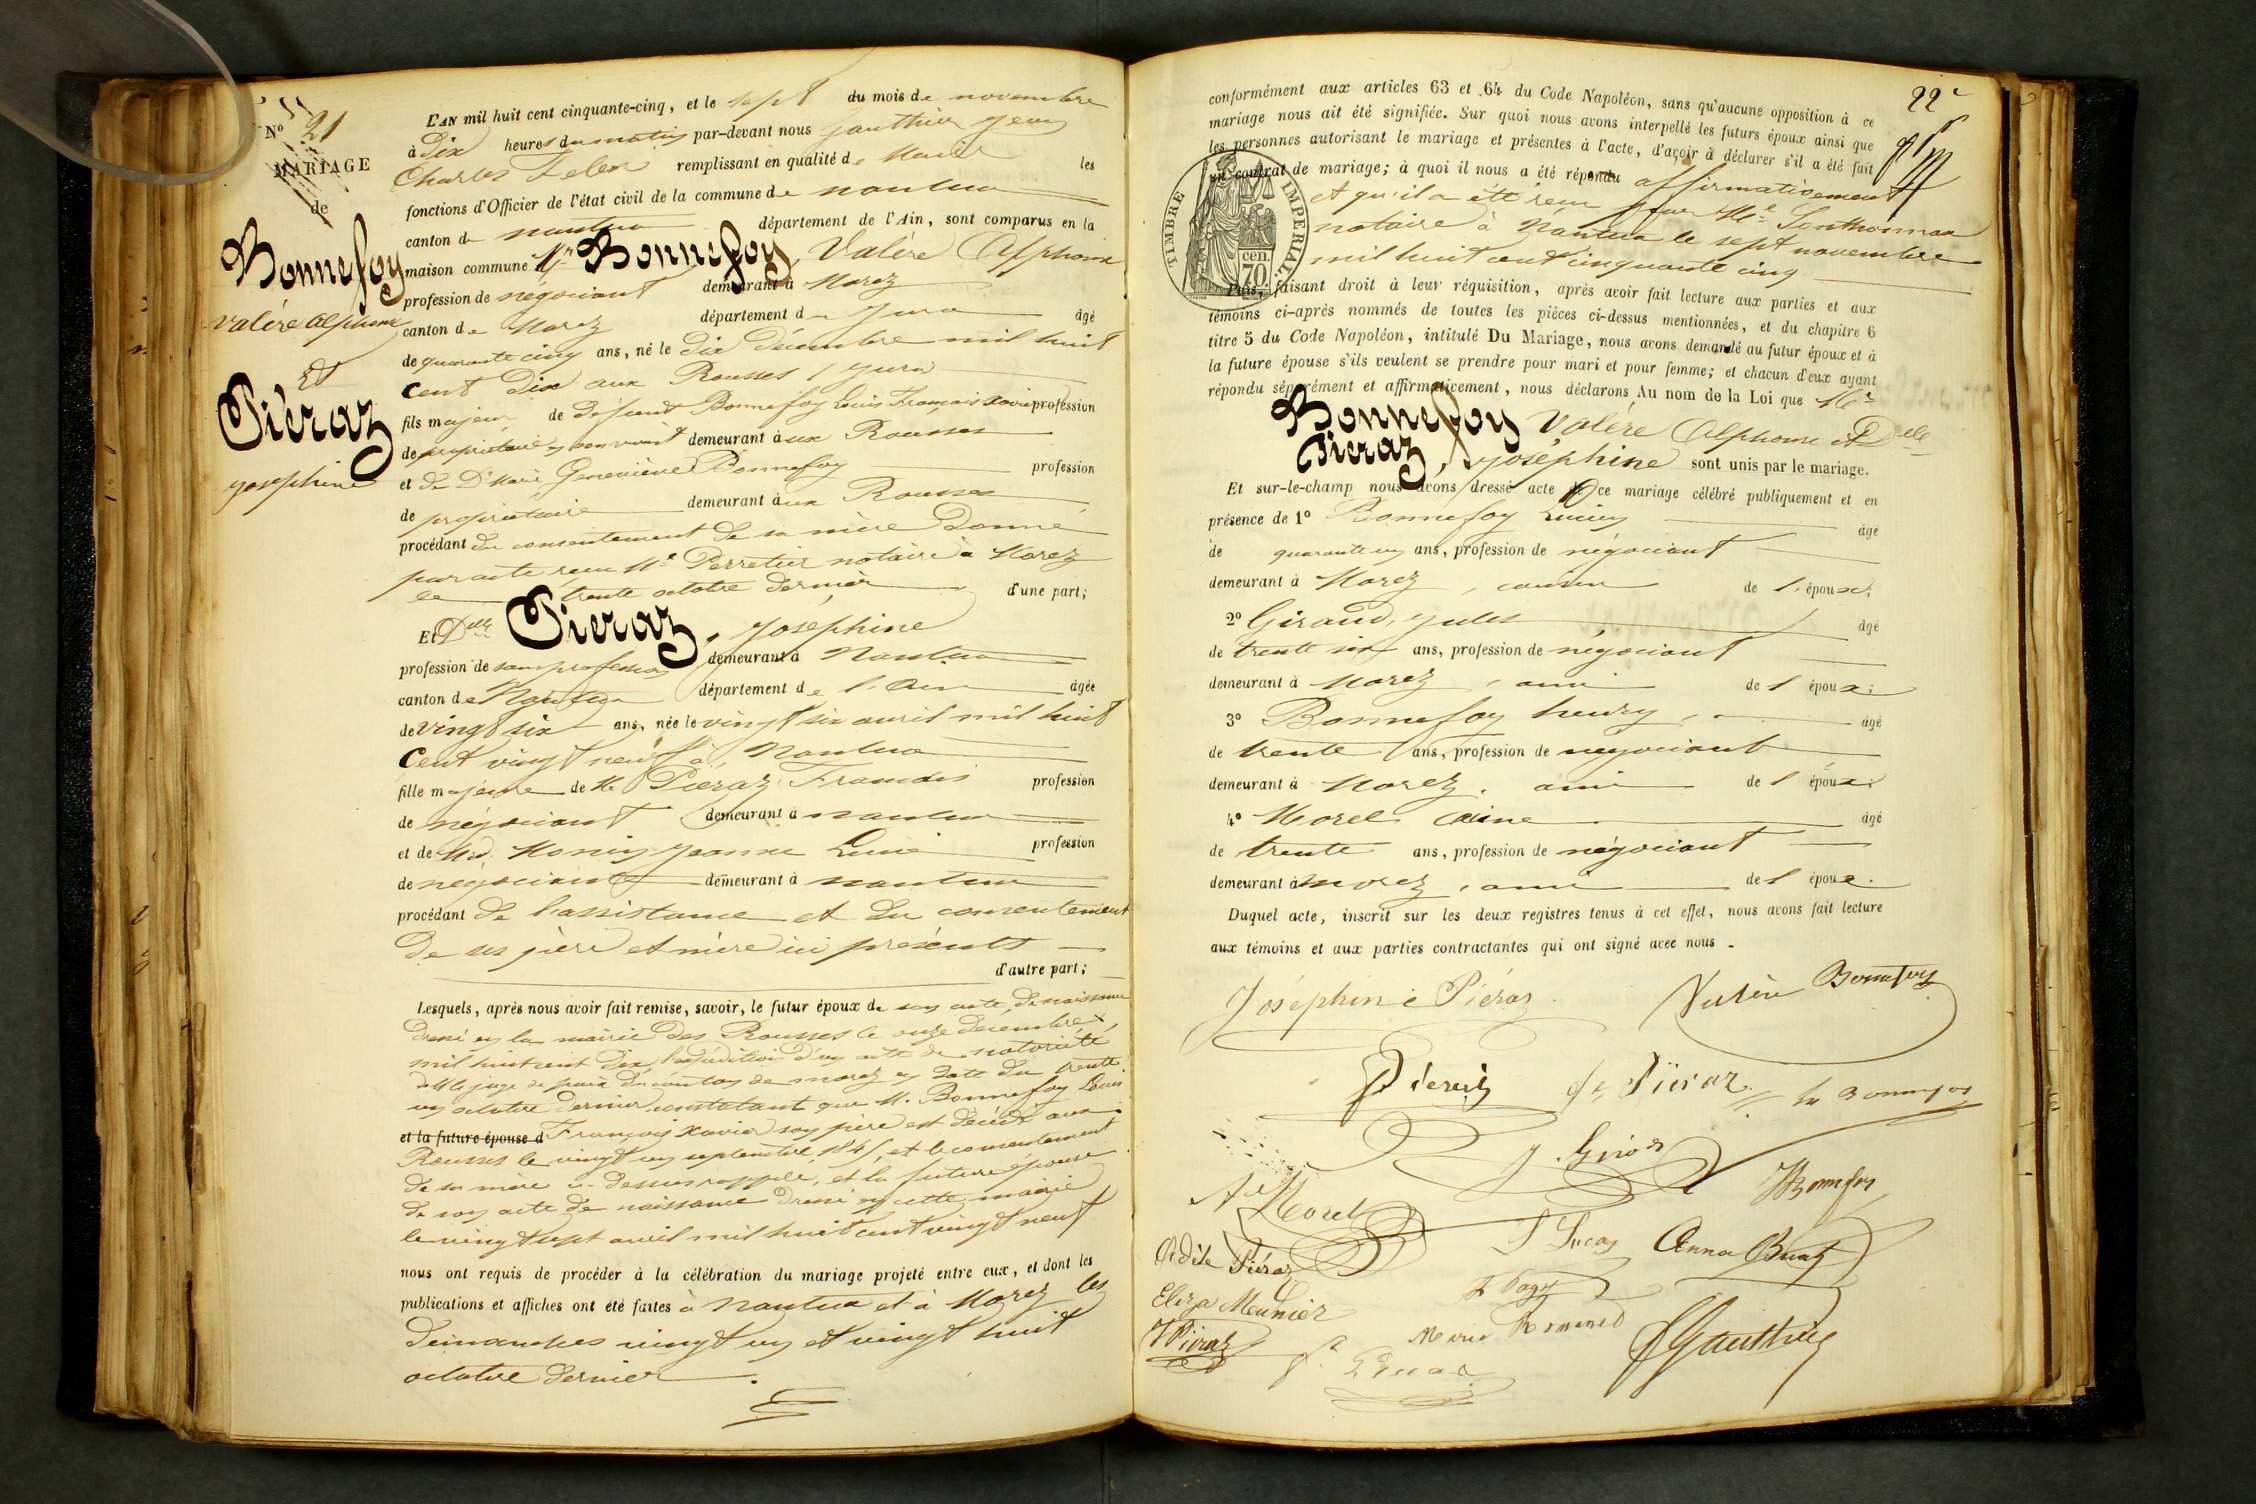 N° 21
MARIAGE
de
Bonnefoy
Valère Alphonse
Et
Piéraz
Joséphine
L'AN mil huit cent cinquante-cinq, et le sept du mois de novembre
à Dix heures du matin par-devant nous Gauthier Jean
Charles Felix remplissant en qualité de Maire les
fonctions d'Officier de l'état civil de la commune de nantua
canton de nantua département de l'Ain, sont comparus en la
maison commune Mr Bonnefoy, Valère Alphonse
profession de négociant demeurant à Morez
canton de Morez département du Jura âgé
de quarante cinq ans, né le dix Décembre mil huit
Cent Dix aux Rousses (Jura
fils majeur de défunt Bonnefoy Louis François Xavier profession
de propriétaire en son vivant demeurant aux Rousses
et de De Marie Geneviève Bonnefoy profession
de propriétaire demeurant aux Rousses
procédant du consentement de sa mère Donné
par acte reçu Me Perretier notaire à Morez
le trente octobre dernier d'une part;
Et Delle Piéraz, Joséphine
profession de sans profession demeurant à Nantua
canton de Nantua département de l'Ain âgée
de vingt six ans, née le vingt six avril mil huit
Cent vingt neuf à Nantua
fille majeure de Mr Piéraz François profession
de négociant demeurant à nantua
et de Md. Monin Jeanne Lucie profession
de négociante demeurant à nantua
procédant de l'assistance et du consentement
De ses père et mère ici présents
d'autre part;
Lesquels, après nous avoir fait remise, savoir, le futur époux de son acte de naissance
Dressé en la mairie des Rousses le onze Décembre
mil huit cent Dix, l'expédition d'un acte de notoriété
de Mr le juge de paix du canton de morez en date du trente
un octobre dernier constatant que M. Bonnefoy Louis
et la future épouse d François Xavier son père est décédé aux
Rousses le vingt un septembre 1841, et le consentement
de sa mère ci-dessus rappelé, et la future épouse
de son acte de naissance dressé en cette mairie
le vingt sept avril mil huit cent vingt neuf
nous ont requis de procéder à la célébration du mariage projeté entre eux, et dont les
publications et affiches ont été faites à Nantua et à Morez les
Dimanches vingt un et vingt huit
octobre dernier.
22e
conformément aux articles 63 et 64 du Code Napoléon, sans qu'aucune opposition à ce
mariage nous ait été signifiée. Sur quoi nous avons interpellé les futurs époux ainsi que
les personnes autorisant le mariage et présentes à l'acte, d'avoir à déclarer s'il a été fait
un contrat de mariage; à quoi il nous a été répondu affirmativement
et qu'il a été reçu par Me Sonthonnax
notaire à Nantua le sept novembre
mil huit cent cinquante cinq
TIMBRE IMPERIAL.
cen. 70.
Puis, faisant droit à leur réquisition, après avoir fait lecture aux parties et aux
témoins ci-après nommés de toutes les pièces ci-dessus mentionnées, et du chapitre 6
titre 5 du Code Napoléon, intitulé Du Mariage, nous avons demandé au futur époux et à
la future épouse s'ils veulent se prendre pour mari et pour femme; et chacun d'eux ayant
répondu séparément et affirmativement, nous déclarons Au nom de la Loi que Mr
Bonnefoy Valère Alphonse et Delle
Piéraz, Joséphine sont unis par le mariage.
Et sur-le-champ nous avons dressé acte de ce mariage célébré publiquement et en
présence de 1° Bonnefoy Lucien âgé
de quarante un ans, profession de négociant
demeurant à Morez, cousin de l'époux;
2° Giraud, Jules âgé
de trente six ans, profession de négociant
demeurant à Morez, ami de l'époux;
3° Bonnefoy henry, âgé
de trente ans, profession de négociant
demeurant à Morez, ami de l'époux:
4° Morel Aimé âgé
de trente ans, profession de négociant
demeurant à morez, ami de l'époux.
Duquel acte, inscrit sur les deux registres tenus à cet effet, nous avons fait lecture
aux témoins et aux parties contractantes qui ont signé avec nous.
Joséphine Piéraz Valère Bonnefoy
Piéraz Je Piéraz Ln Bonnefoy
J. Girod
Aé Morel HBonnefoy
Odile Piéraz Anna Buaz
Eliza Meunier
JPiéraz Marie Romand JGauthier